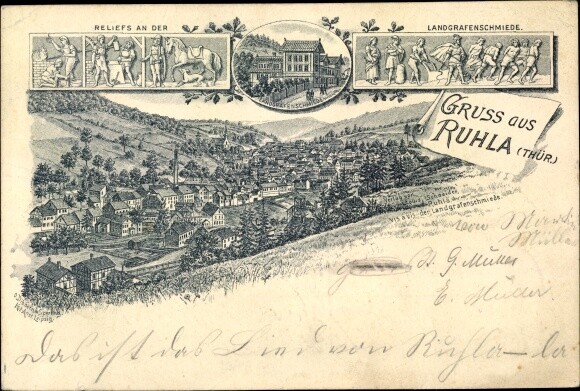 RELIEFS AN DER
LANDGRAFENSCHMIEDE.
LANDGRAFENSCHMIEDE
GRUSS aus
RUHLA (THÜR.)
Vis à vis der Landgrafenschmiede.
von
Müller
G. Müller
E. Müller.
Das ist das Lied von Ruhla – la